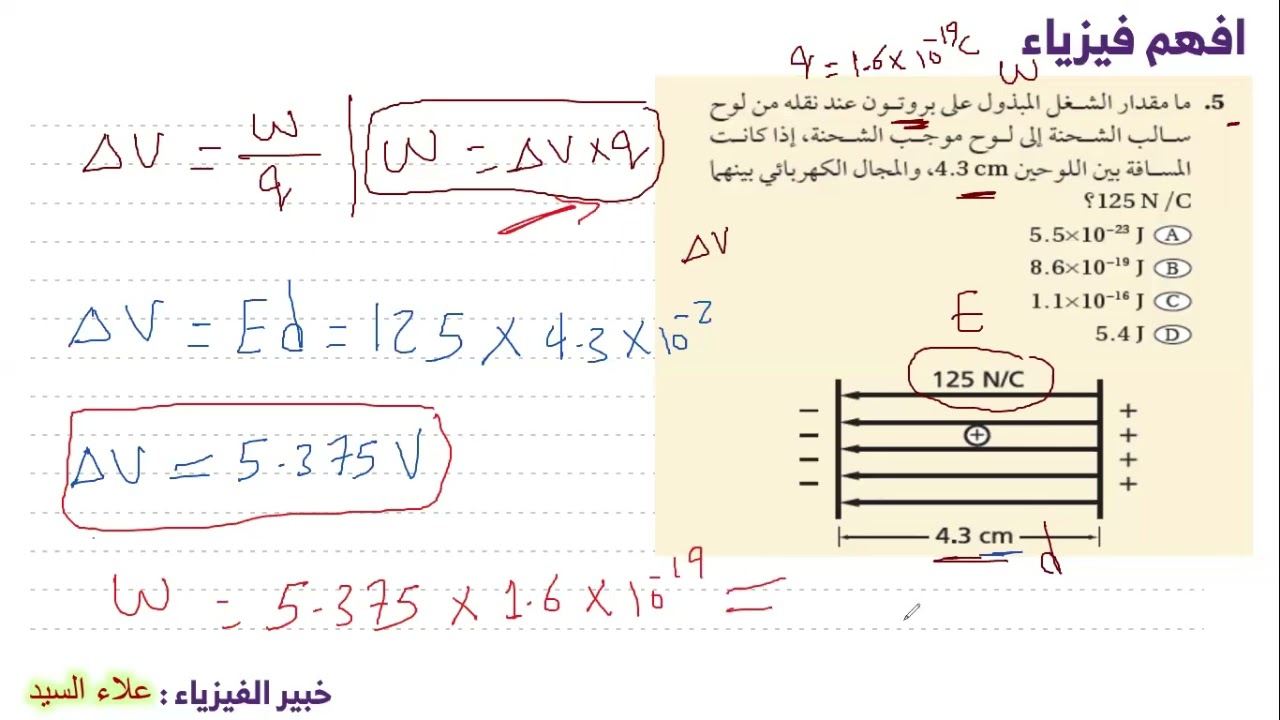 افهم فيزياء
q = 1.6 × 10⁻¹⁹ C
W
5. ما مقدار الشغل المبذول على بروتون عند نقله من لوح
سالب الشحنة إلى لوح موجب الشحنة، إذا كانت
المسافة بين اللوحين 4.3 cm، والمجال الكهربائي بينهما
125 N /C؟
5.5×10⁻²³ J A
8.6×10⁻¹⁹ J B
1.1×10⁻¹⁶ J C
5.4 J D
ΔV
E
125 N/C
− +
− +
− +
− +
+
4.3 cm
d
ΔV = W/q | W = ΔV × q
ΔV = Ed = 125 × 4.3 × 10⁻²
ΔV = 5.375 V
W = 5.375 × 1.6 × 10⁻¹⁹ =
خبير الفيزياء : علاء السيد